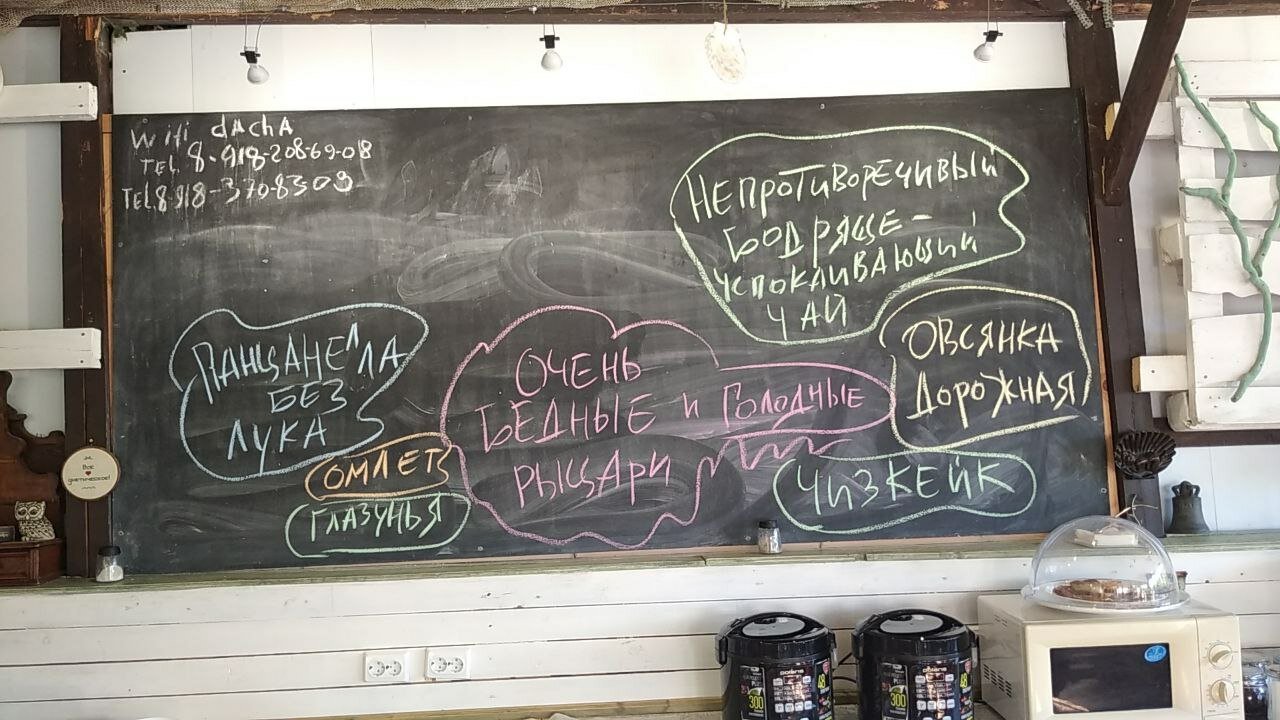 Wifi dAchA
TEL 8-918-208-69-08
TEL 8 918-370-8309
НЕПРОТИВОРЕЧИВЫЙ
БОДРЯЩЕ-
УСПОКАИВАЮЩИЙ
ЧАЙ
ПАНЦАНЕЛЛА
БЕЗ
ЛУКА
ОЧЕНЬ
БЕДНЫЕ И ГОЛОДНЫЕ
РЫЦАРИ
ОВСЯНКА
ДОРОЖНАЯ
ОМЛЕТ
ГЛАЗУНЬЯ
ЧИЗКЕЙК
300
300